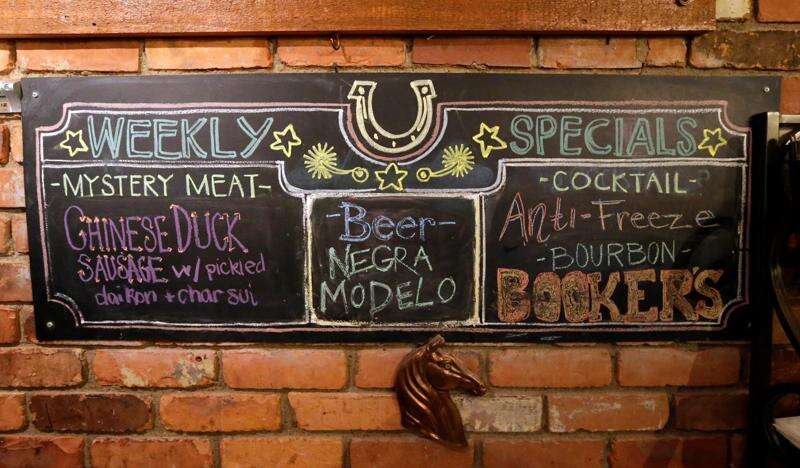 WEEKLY SPECIALS
-MYSTERY MEAT-
CHINESE DUCK
SAUSAGE w/ pickled
daikon + char sui
-Beer-
NEGRA
MODELO
-COCKTAIL-
Anti-Freeze
-BOURBON-
BOOKER'S